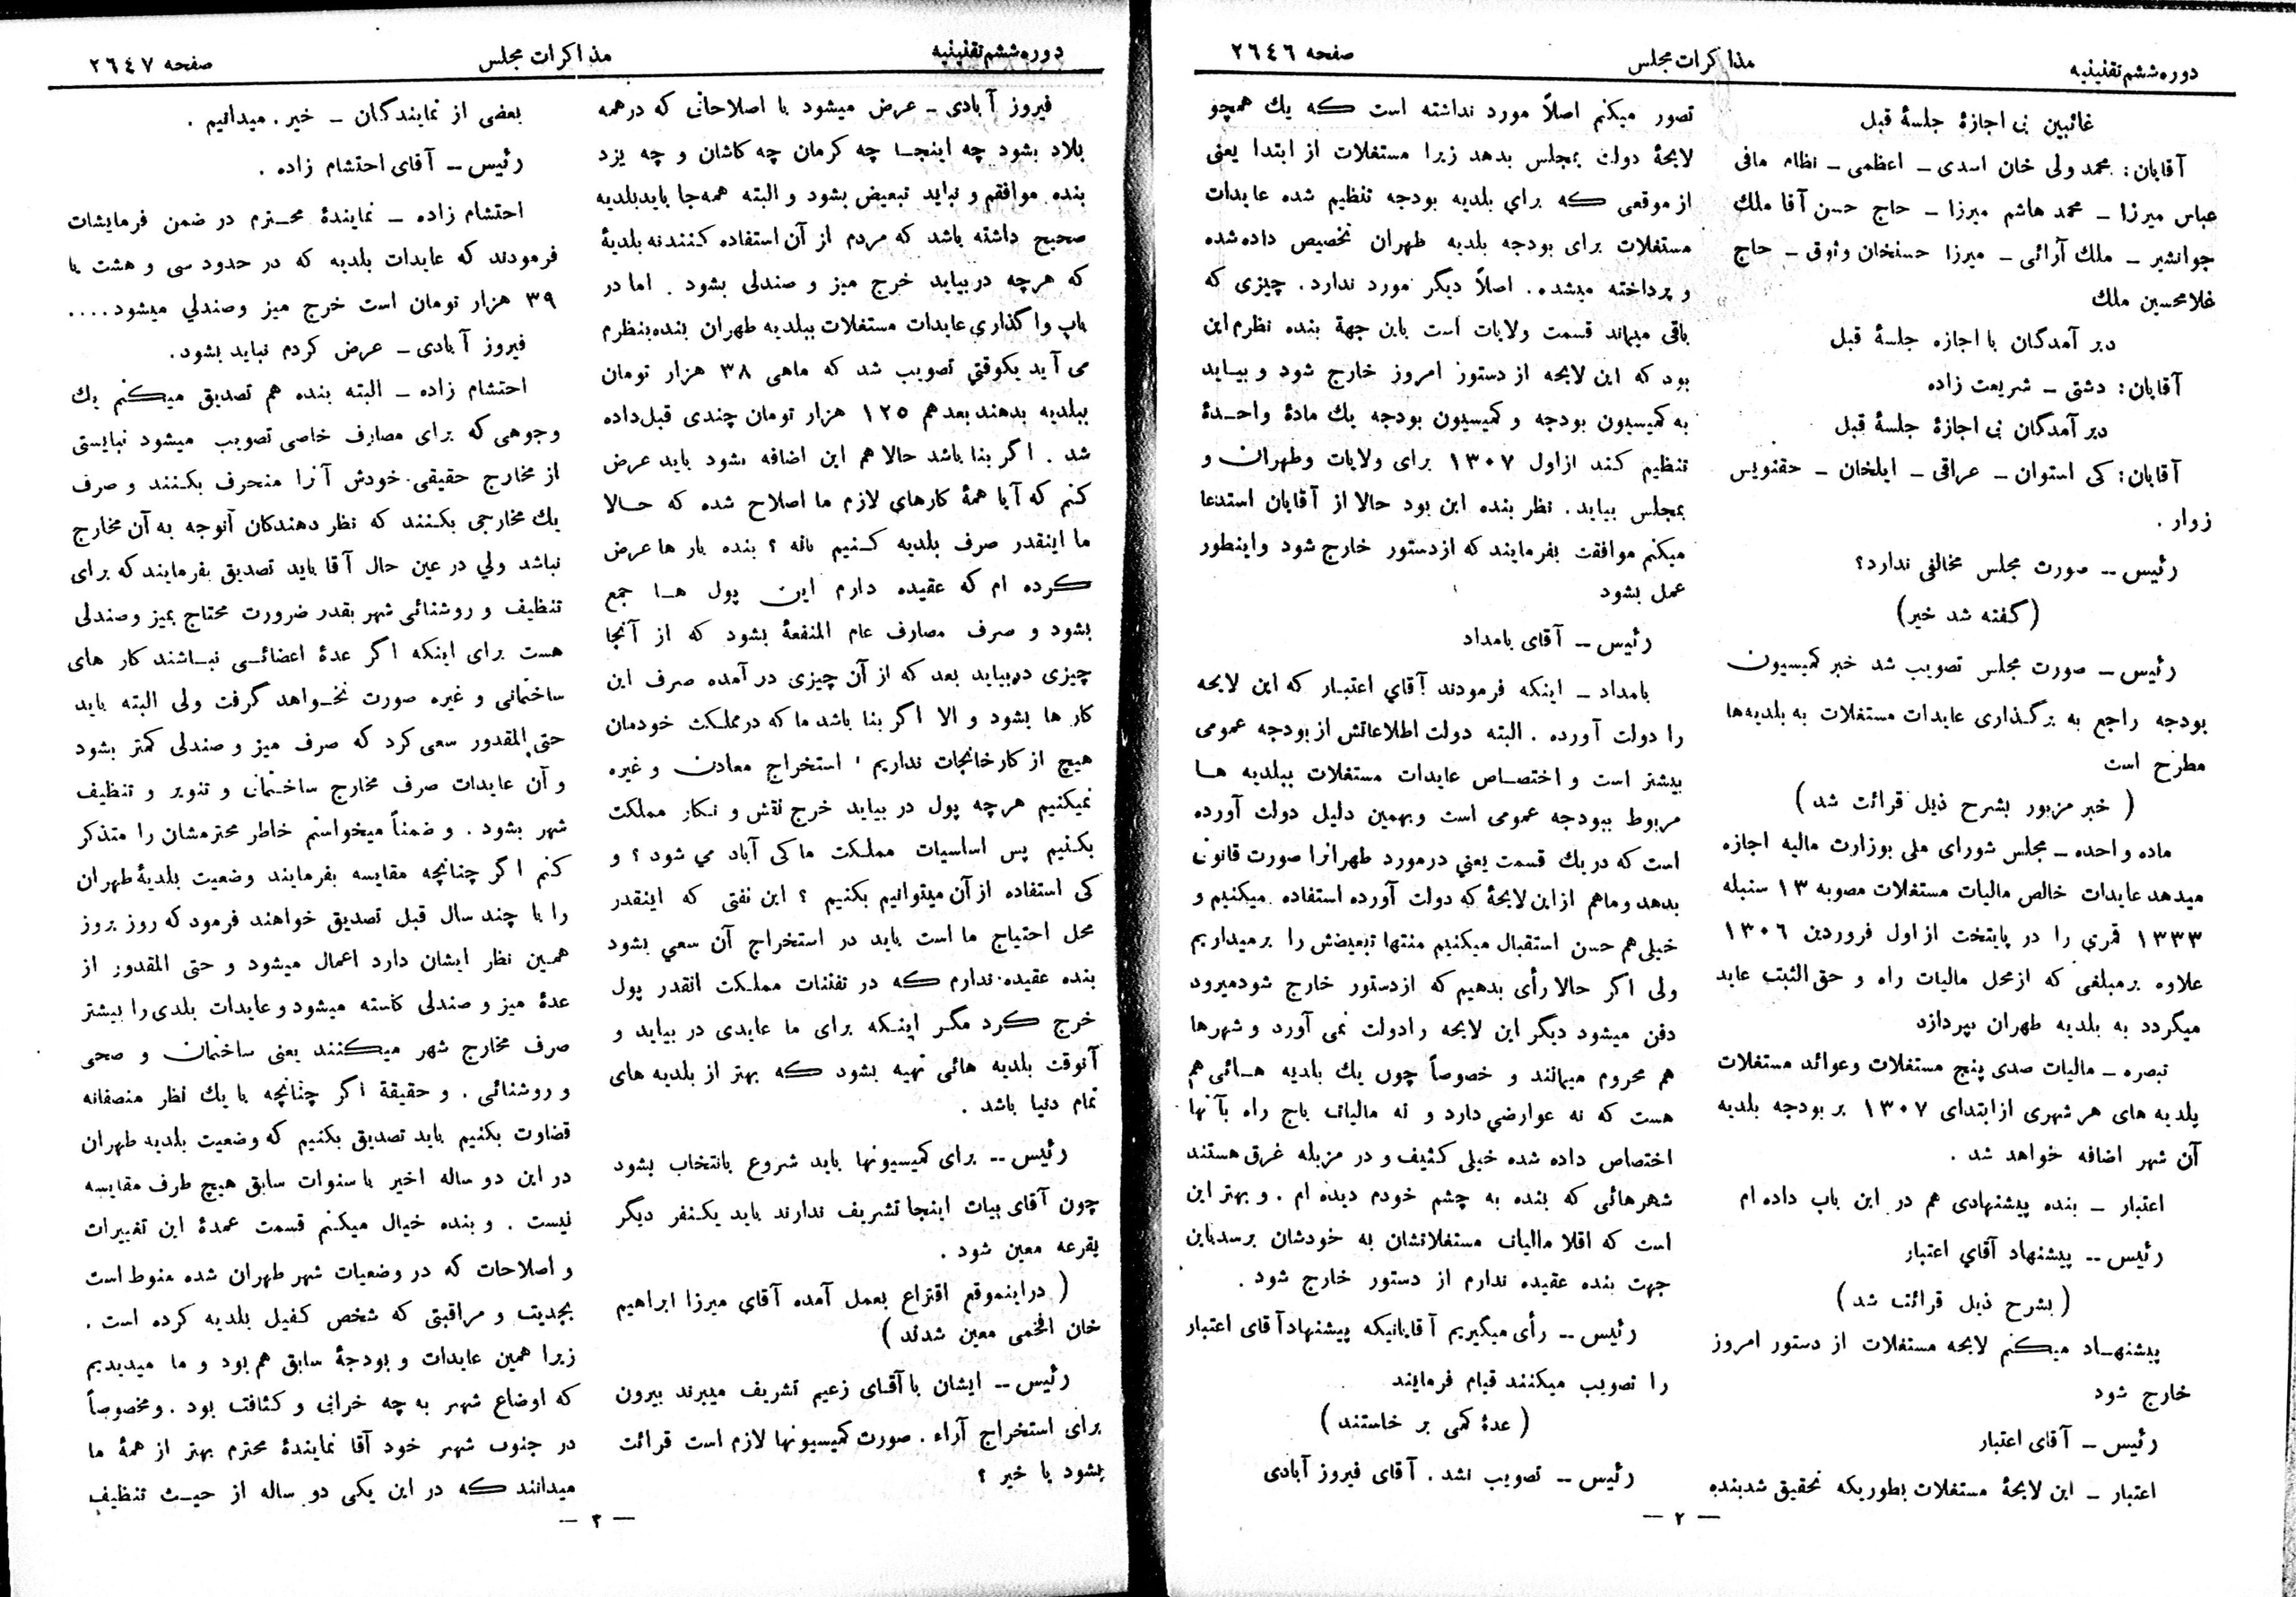 دوره ششم تقنینیه
مذاکرات مجلس
صفحه ٢٦٤٦
غائبین بی اجازهٔ جلسهٔ قبل
آقایان: محمد ولی خان اسدی ــ اعظمی ــ نظام مافی
عباس میرزا ــ محمد هاشم میرزا ــ حاج حسن آقا ملك
جوانشیر ــ ملك آرائی ــ میرزا حسنخان وثوق ــ حاج
غلامحسین ملك
دیر آمدگان با اجازه جلسهٔ قبل
آقایان: دشتی ــ شریعت زاده
دیر آمدگان بی اجازهٔ جلسهٔ قبل
آقایان: کی استوان ــ عراقی ــ ایلخان ــ حقنویس
زوار .
رئیس ــ صورت مجلس مخالفی ندارد؟
(گفته شد خیر)
رئیس ــ صورت مجلس تصویب شد خبر کمیسیون
بودجه راجع به برگذاری عایدات مستغلات به بلدیه‌ها
مطرح است
( خبر مزبور بشرح ذیل قرائت شد)
ماده واحده ــ مجلس شورای ملی بوزارت مالیه اجازه
میدهد عایدات خالص مالیات مستغلات مصوبه ١٣ سنبله
١٣٣٣ قمري را در پایتخت از اول فروردین ١٣٠٦
علاوه بر مبلغی که از محل مالیات راه و حق الثبت عاید
میگردد به بلدیه طهران بپردازد
تبصره ــ مالیات صدی پنج مستغلات وعوائد مستغلات
بلدیه های هر شهری از ابتدای ١٣٠٧ بر بودجه بلدیه
آن شهر اضافه خواهد شد .
اعتبار ــ بنده پیشنهادی هم در این باب داده ام
رئیس ــ پیشنهاد آقاي اعتبار
(بشرح ذیل قرائت شد)
پیشنهاد میکنم لایحه مستغلات از دستور امروز
خارج شود
رئیس ــ آقای اعتبار
اعتبار ــ این لایحهٔ مستغلات بطوریکه تحقیق شد بنده
تصور میکنم اصلاً مورد نداشته است که یك همچو
لایحهٔ دولت بمجلس بدهد زیرا مستغلات از ابتدا یعنی
از موقعی که براي بلدیه بودجه تنظیم شده عایدات
مستغلات برای بودجه بلدیه طهران تخصیص داده شده
و پرداخته میشده. اصلاً دیگر مورد ندارد. چیزی که
باقی میماند قسمت ولایات است باین جهة بنده نظرم این
بود که این لایحه از دستور امروز خارج شود و بیاید
به کمیسیون بودجه و کمیسیون بودجه یك مادهٔ واحدهٔ
تنظیم کند از اول ١٣٠٧ برای ولایات وطهران و
بمجلس بیاید. نظر بنده این بود حالا از آقایان استدعا
میکنم موافقت بفرمایند که از دستور خارج شود و اینطور
عمل بشود
رئیس ــ آقای بامداد
بامداد ــ اینکه فرمودند آقاي اعتبار که این لایحه
را دولت آورده . البته دولت اطلاعاتش از بودجه عمومی
بیشتر است و اختصاص عایدات مستغلات ببلدیه ها
مربوط ببودجه عمومی است وبهمین دلیل دولت آورده
است که در یك قسمت یعني در مورد طهران را صورت قانون
بدهد وماهم از این لایحهٔ که دولت آورده استفاده میکنیم و
خیلی هم حسن استقبال میکنیم منتها تبعیضش را برمیداریم
ولی اگر حالا رأی بدهیم که از دستور خارج شود میرود
دفن میشود دیگر این لایحه را دولت نمی آورد و شهرها
هم محروم میمانند و خصوصاً چون یك بلدیه هائی هم
هست که نه عوارضي دارد و نه مالیات باج راه بآنها
اختصاص داده شده خیلی کثیف و در مزبله غرق هستند
شهرهائی که بنده به چشم خودم دیده ام . و بهتر این
است که اقلا مالیات مستغلاتشان به خودشان برسد باین
جهت بنده عقیده ندارم از دستور خارج شود .
رئیس ــ رأی میگیریم آقایانیکه پیشنهاد آقای اعتبار
را تصویب میکنند قیام فرمایند
(عدهٔ کمی بر خاستند)
رئیس ــ تصویب نشد . آقای فیروز آبادی
— ٢ —
دوره ششم تقنینیه
مذاکرات مجلس
صفحه ٢٦٤٧
فیروز آبادی ــ عرض میشود با اصلاحاتی که در همه
بلاد بشود چه اینجا چه کرمان چه کاشان و چه یزد
بنده موافقم و نباید تبعیض بشود و البته همه جا باید بلدیه
صحیح داشته باشد که مردم از آن استفاده کنند نه بلدیهٔ
که هرچه در بیاید خرج میز و صندلی بشود . اما در
باب واگذاري عایدات مستغلات ببلدیه طهران بنده بنظرم
می آید یکوقتي تصویب شد که ماهی ٣٨ هزار تومان
ببلدیه بدهند بعد هم ١٢٥ هزار تومان چندی قبل داده
شد . اگر بنا باشد حالا هم این اضافه بشود باید عرض
کنم که آیا همهٔ کارهاي لازم ما اصلاح شده که حالا
ما اینقدر صرف بلدیه کنیم یا نه ؟ بنده بار ها عرض
کرده ام که عقیده دارم این پول ها جمع
بشود و صرف مصارف عام المنفعهٔ بشود که از آنجا
چیزی در بیاید بعد که از آن چیزی در آمده صرف این
کار ها بشود و الا اگر بنا باشد ما که در مملکت خودمان
هیچ از کارخانجات نداریم ' استخراج معادن و غیره
نمیکنیم هرچه پول در بیاید خرج نقش و نگار مملکت
بکنیم پس اساسیات مملکت ما کی آباد مي شود ؟ و
کی استفاده از آن میتوانیم بکنیم ؟ این نفتی که اینقدر
محل احتیاج ما است باید در استخراج آن سعي بشود
بنده عقیده ندارم که در تفننات مملکت انقدر پول
خرج کرد مگر اینکه برای ما عایدی در بیاید و
آنوقت بلدیه هائی تهیه بشود که بهتر از بلدیه های
تمام دنیا باشد .
رئیس ــ برای کمیسیونها باید شروع بانتخاب بشود
چون آقای بیات اینجا تشریف ندارند باید یکنفر دیگر
بقرعه معین شود .
( در اینموقع اقتراع بعمل آمده آقاي میرزا ابراهیم
خان افخمی معین شدند )
رئیس ــ ایشان با آقای زعیم تشریف میبرند بیرون
برای استخراج آراء . صورت کمیسیونها لازم است قرائت
بشود یا خیر ؟
بعضی از نمایندگان ــ خیر . میدانیم .
رئیس ــ آقای احتشام زاده .
احتشام زاده ــ نمایندهٔ محترم در ضمن فرمایشات
فرمودند که عایدات بلدیه که در حدود سی و هشت یا
٣٩ هزار تومان است خرج میز وصندلي میشود....
فیروز آبادی ــ عرض کردم نباید بشود.
احتشام زاده ــ البته بنده هم تصدیق میکنم یك
وجوهی که برای مصارف خاصی تصویب میشود نبایستی
از مخارج حقیقی خودش آنرا منحرف بکنند و صرف
یك مخارجی بکنند که نظر دهندگان آنوجه به آن مخارج
نباشد ولي در عین حال آقا باید تصدیق بفرمایند که برای
تنظیف و روشنائی شهر بقدر ضرورت محتاج بمیز وصندلی
هست برای اینکه اگر عدهٔ اعضائی نباشند کار های
ساختمانی و غیره صورت نخواهد گرفت ولی البته باید
حتی المقدور سعی کرد که صرف میز و صندلی کمتر بشود
و آن عایدات صرف مخارج ساختمان و تنویر و تنظیف
شهر بشود . و ضمناً میخواستم خاطر محترمشان را متذکر
کنم اگر چنانچه مقایسه بفرمایند وضعیت بلدیهٔ طهران
را با چند سال قبل تصدیق خواهند فرمود که روز بروز
همین نظر ایشان دارد اعمال میشود و حتی المقدور از
عدهٔ میز و صندلی کاسته میشود و عایدات بلدی را بیشتر
صرف مخارج شهر میکنند یعنی ساختمان و صحی
و روشنائی . و حقیقة اگر چنانچه با یك نظر منصفانه
قضاوت بکنیم باید تصدیق بکنیم که وضعیت بلدیه طهران
در این دو ساله اخیر با سنوات سابق هیچ طرف مقایسه
نیست . و بنده خیال میکنم قسمت عمدهٔ این تغییرات
و اصلاحات که در وضعیات شهر طهران شده منوط است
بجدیت و مراقبتی که شخص کفیل بلدیه کرده است .
زیرا همین عایدات و بودجهٔ سابق هم بود و ما میدیدیم
که اوضاع شهر به چه خرابی و کثافت بود . و مخصوصاً
در جنوب شهر خود آقا نمایندهٔ محترم بهتر از همهٔ ما
میدانند که در این یکی دو ساله از حیث تنظیف
— ٣ —